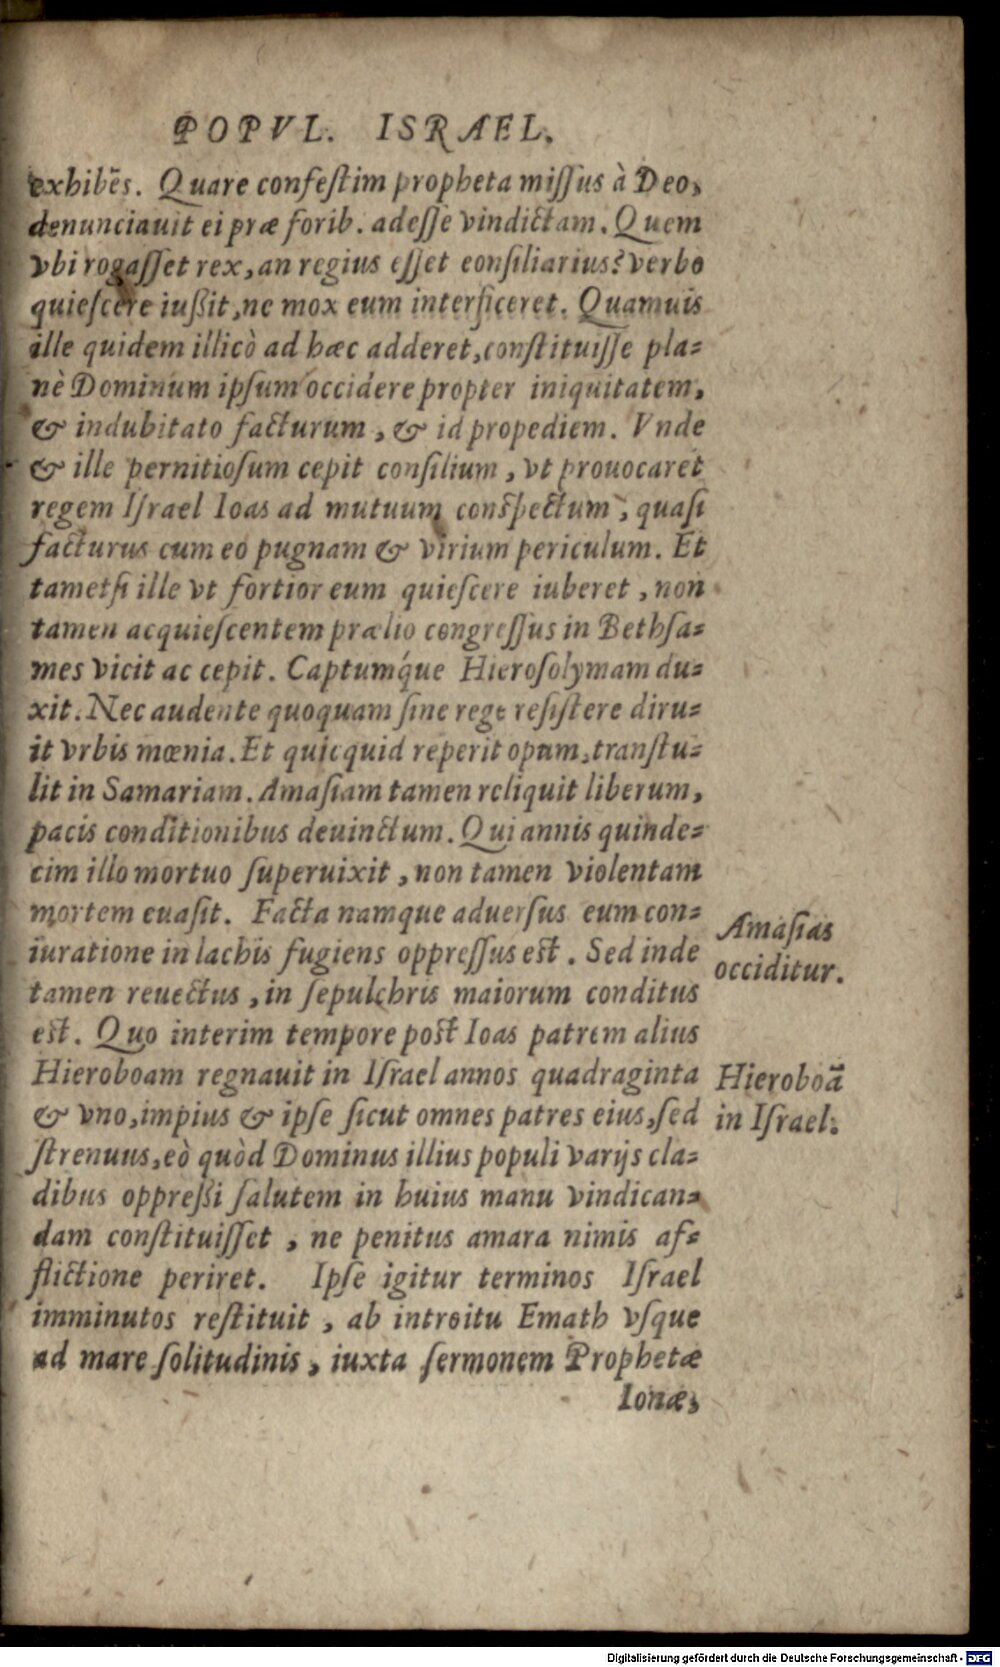 POPVL. ISRAEL.
exhibēs. Quare confeſtim propheta miſſus à Deo,
denunciauit ei præ forib. adeſſe vindictam. Quem
vbi rogaſſet rex, an regius eſſet conſiliarius? verbo
quieſcere iußit, ne mox eum interficeret. Quamuis
ille quidem illicò ad hæc adderet, conſtituiſſe pla=
nè Dominum ipſum occidere propter iniquitatem,
& indubitato facturum, & id propediem. Vnde
& ille pernitioſum cepit conſilium, vt prouocaret
regem Iſrael Ioas ad mutuum conſpectum, quaſi
facturus cum eo pugnam & virium periculum. Et
tametſi ille vt fortior eum quieſcere iuberet, non
tamen acquieſcentem prælio congreſſus in Bethſa=
mes vicit ac cepit. Captumq́ue Hieroſolymam du=
xit. Nec audente quoquam ſine rege reſiſtere diru=
it vrbis mœnia. Et quicquid reperit opum, tranſtu=
lit in Samariam. Amaſiam tamen reliquit liberum,
pacis conditionibus deuinctum. Qui annis quinde=
cim illo mortuo ſuperuixit, non tamen violentam
mortem euaſit. Facta namque aduerſus eum con=
iuratione in lachis fugiens oppreſſus est. Sed inde
tamen reuectus, in ſepulchris maiorum conditus
est. Quo interim tempore post Ioas patrem alius
Hieroboam regnauit in Iſrael annos quadraginta
& vno, impius & ipſe ſicut omnes patres eius, ſed
ſtrenuus, eò quòd Dominus illius populi varijs cla=
dibus oppreßi ſalutem in huius manu vindican=
dam conſtituiſſet, ne penitus amara nimis af=
flictione periret. Ipſe igitur terminos Iſrael
imminutos reſtituit, ab introitu Emath vſque
ad mare ſolitudinis, iuxta ſermonem Prophetæ
Ionæ,
Amaſias
occiditur.
Hieroboā
in Iſrael.
Digitalisierung gefördert durch die Deutsche Forschungsgemeinschaft - DFG